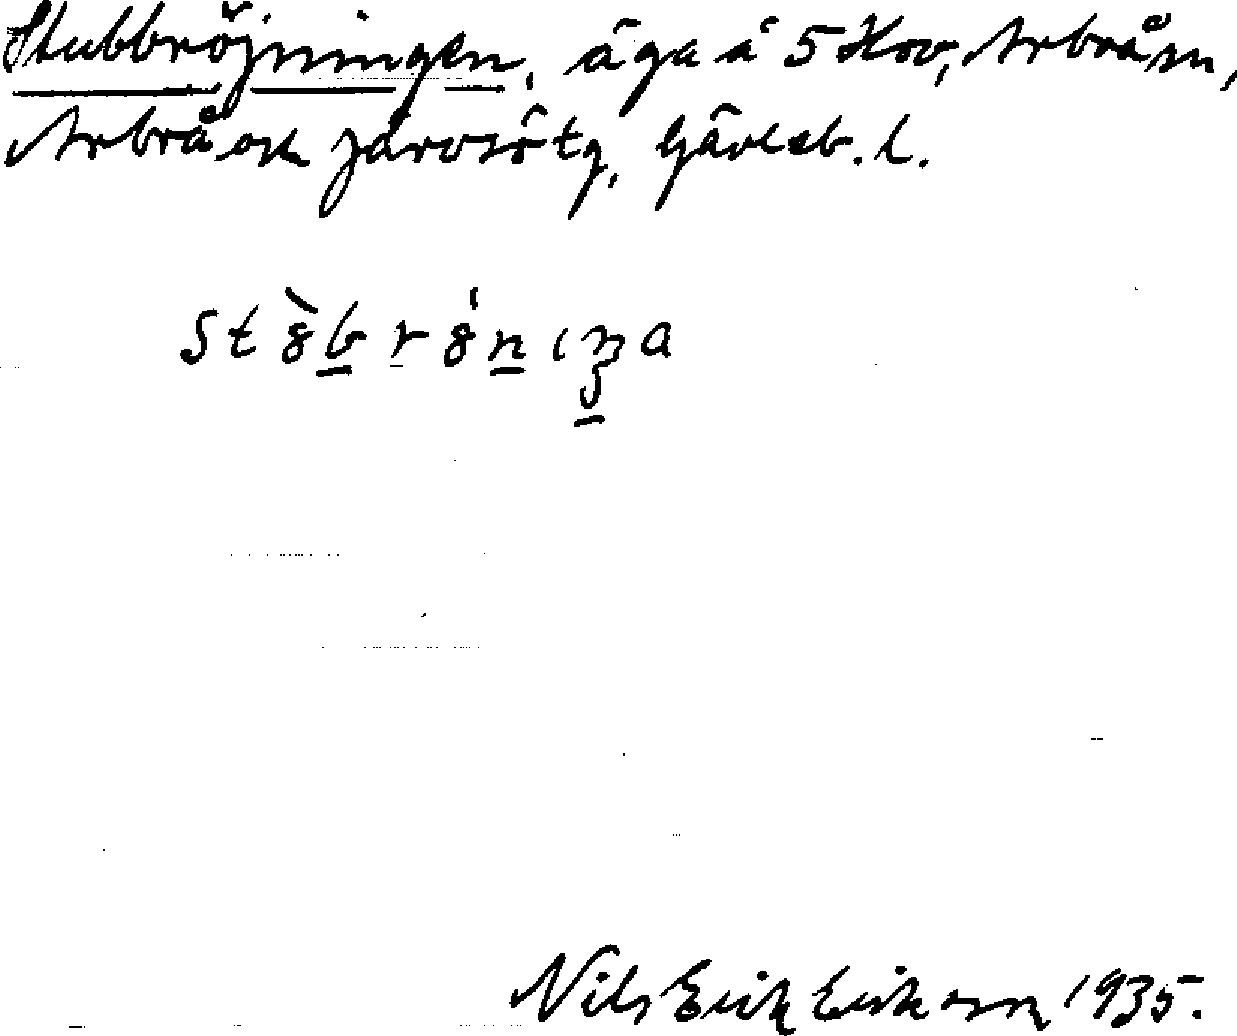 Stubbröjningen, äga å 5 Kov, Arbrå sn,
Arbrå och Järvsö tg, Gävleb. l.
Nils Erik Eriksson 1935.